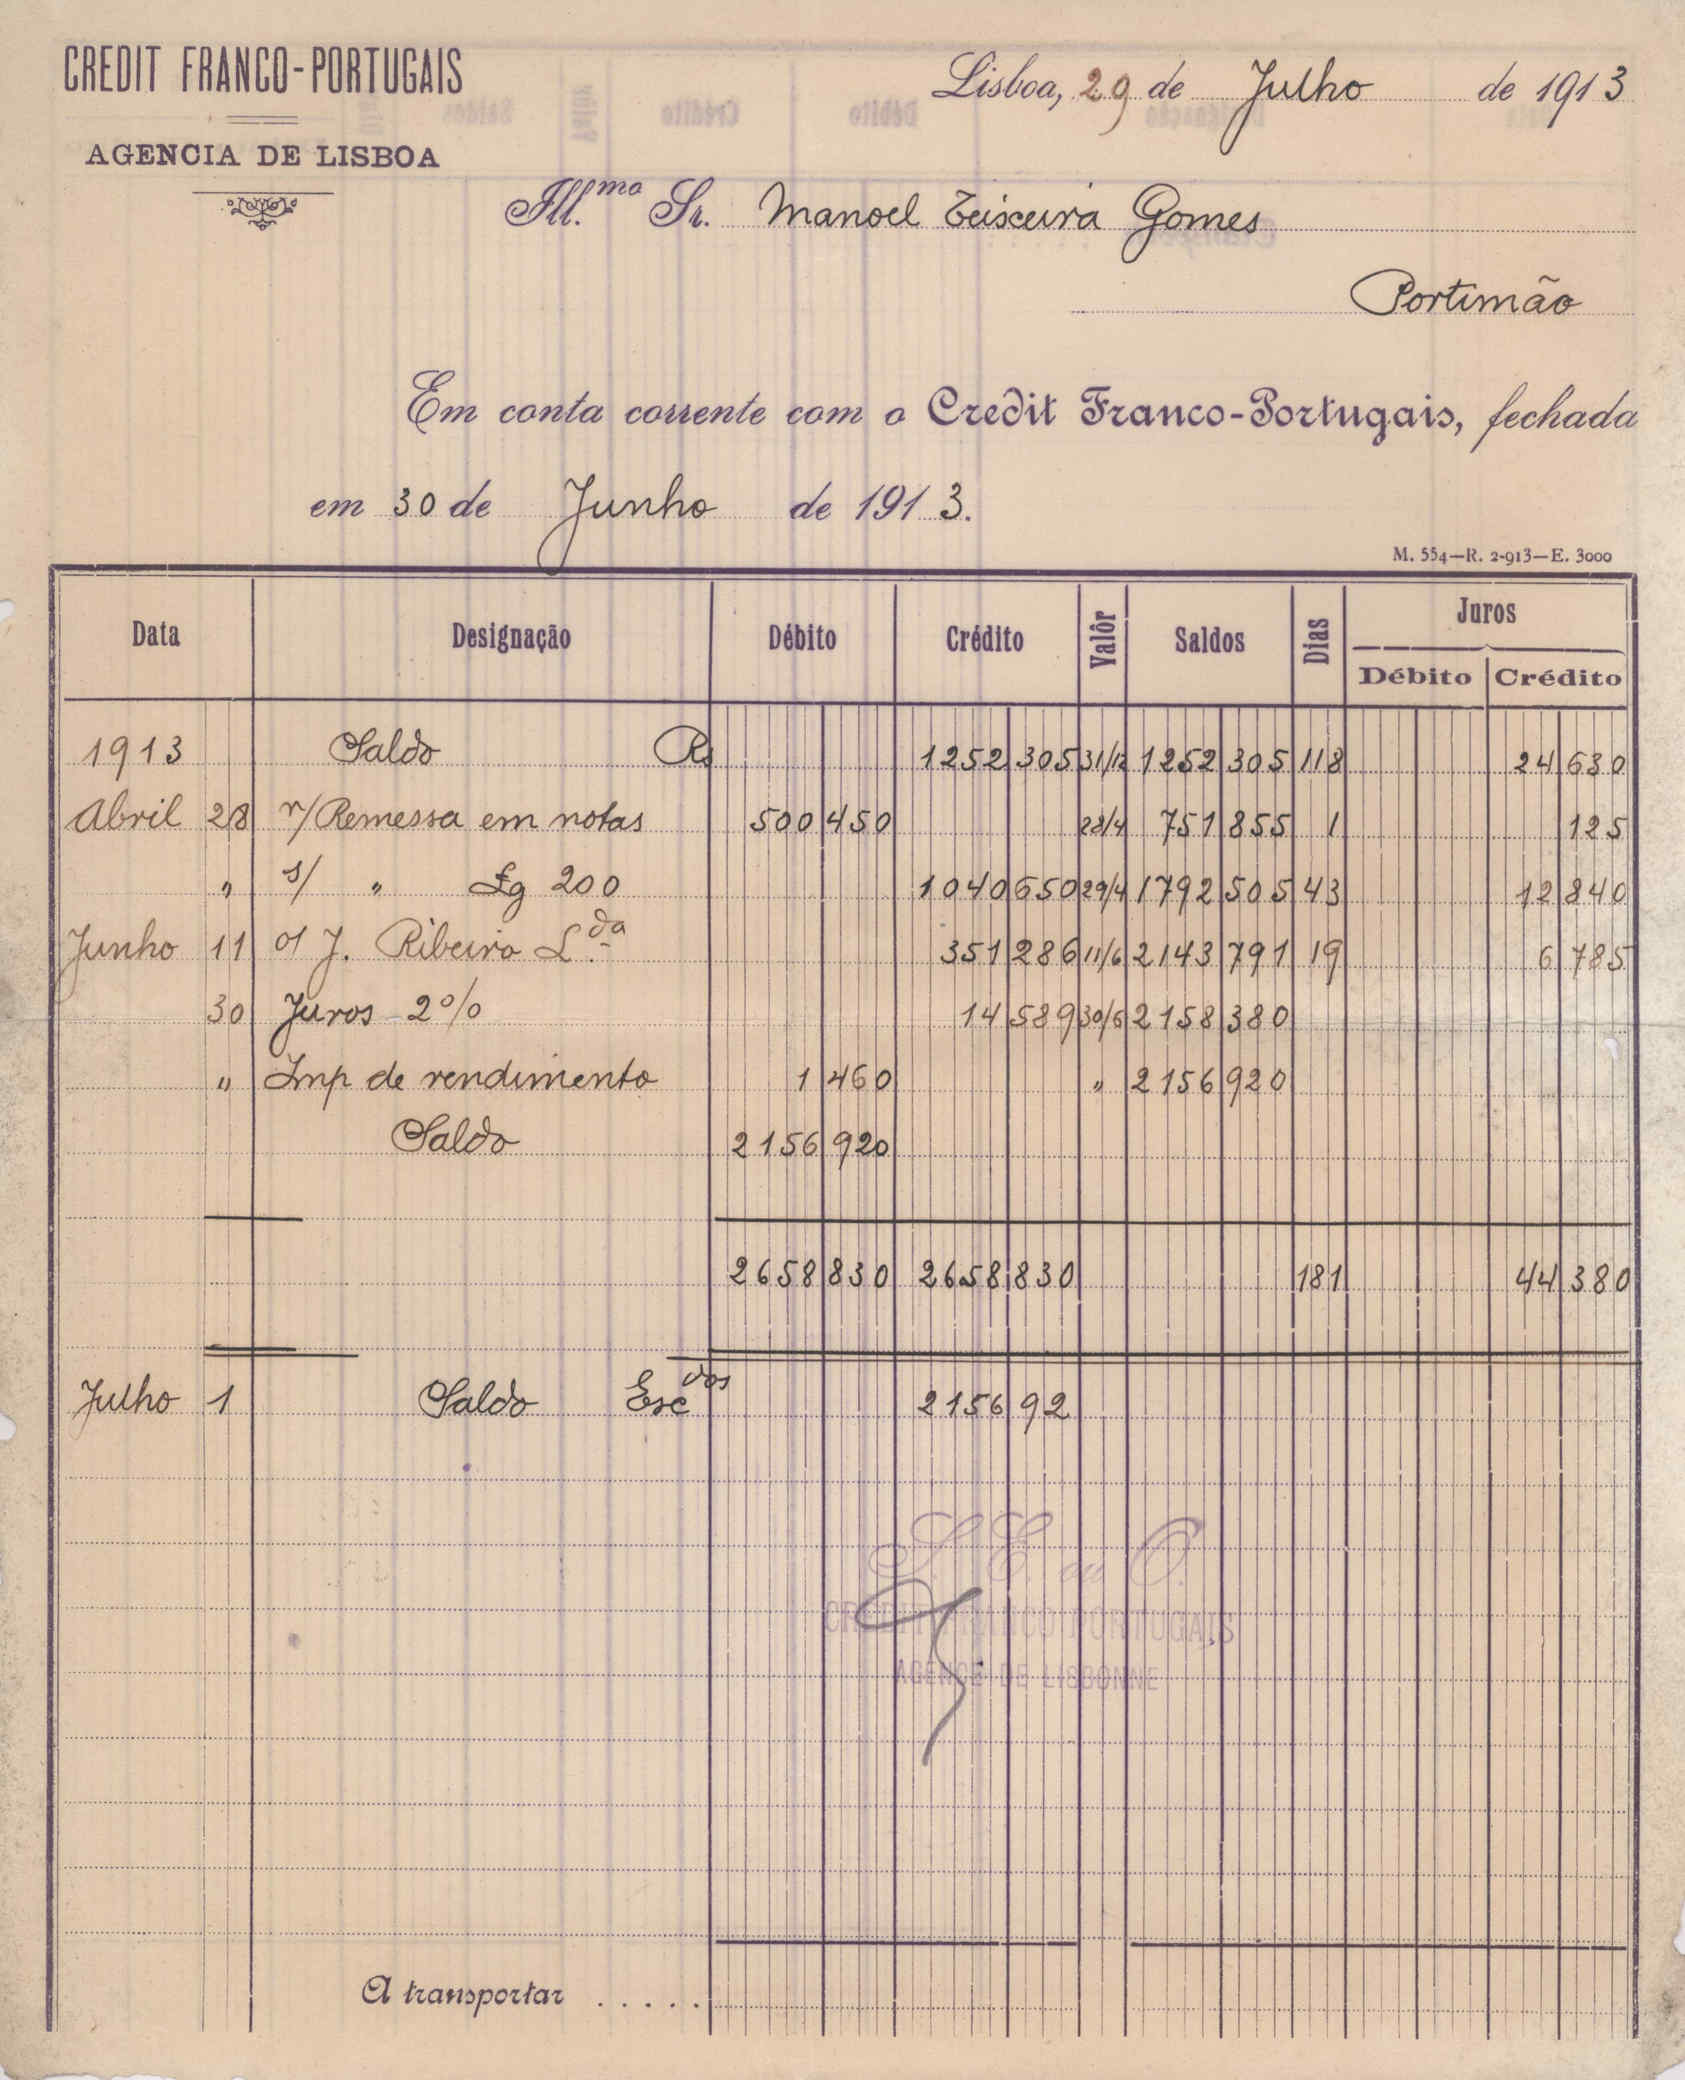 CREDIT FRANCO-PORTUGAIS
AGENCIA DE LISBOA
Lisboa, 29 de Julho de 1913
Ill.mo Sr. Manoel Teixeira Gomes
Portimão
Em conta corrente com o Credit Franco-Portugais, fechada
em 30 de Junho de 1913.
M. 554—R. 2-913—E. 3000
Data Designação Débito Crédito Valôr Saldos Dias Juros
Débito Crédito
1913 Saldo Rs 1252 305 31/12 1252 305 118 24 630
Abril 28 n/ Remessa em notas 500 450 28/4 751 855 1 125
" s/ " Lg 200 1040 650 29/4 1792 505 43 12 840
Junho 11 J. Ribeiro L.da 351 286 11/6 2143 791 19 6 785
30 Juros 2 % 14 589 30/6 2158 380
" Imp de rendimento 1 460 " 2156 920
Saldo 2156 920
2658 830 2658 830 181 44 380
Julho 1 Saldo Escdos 2156 92
S. E. ou O.
CREDIT FRANCO PORTUGAIS
AGENCE DE LISBONNE
A transportar .....